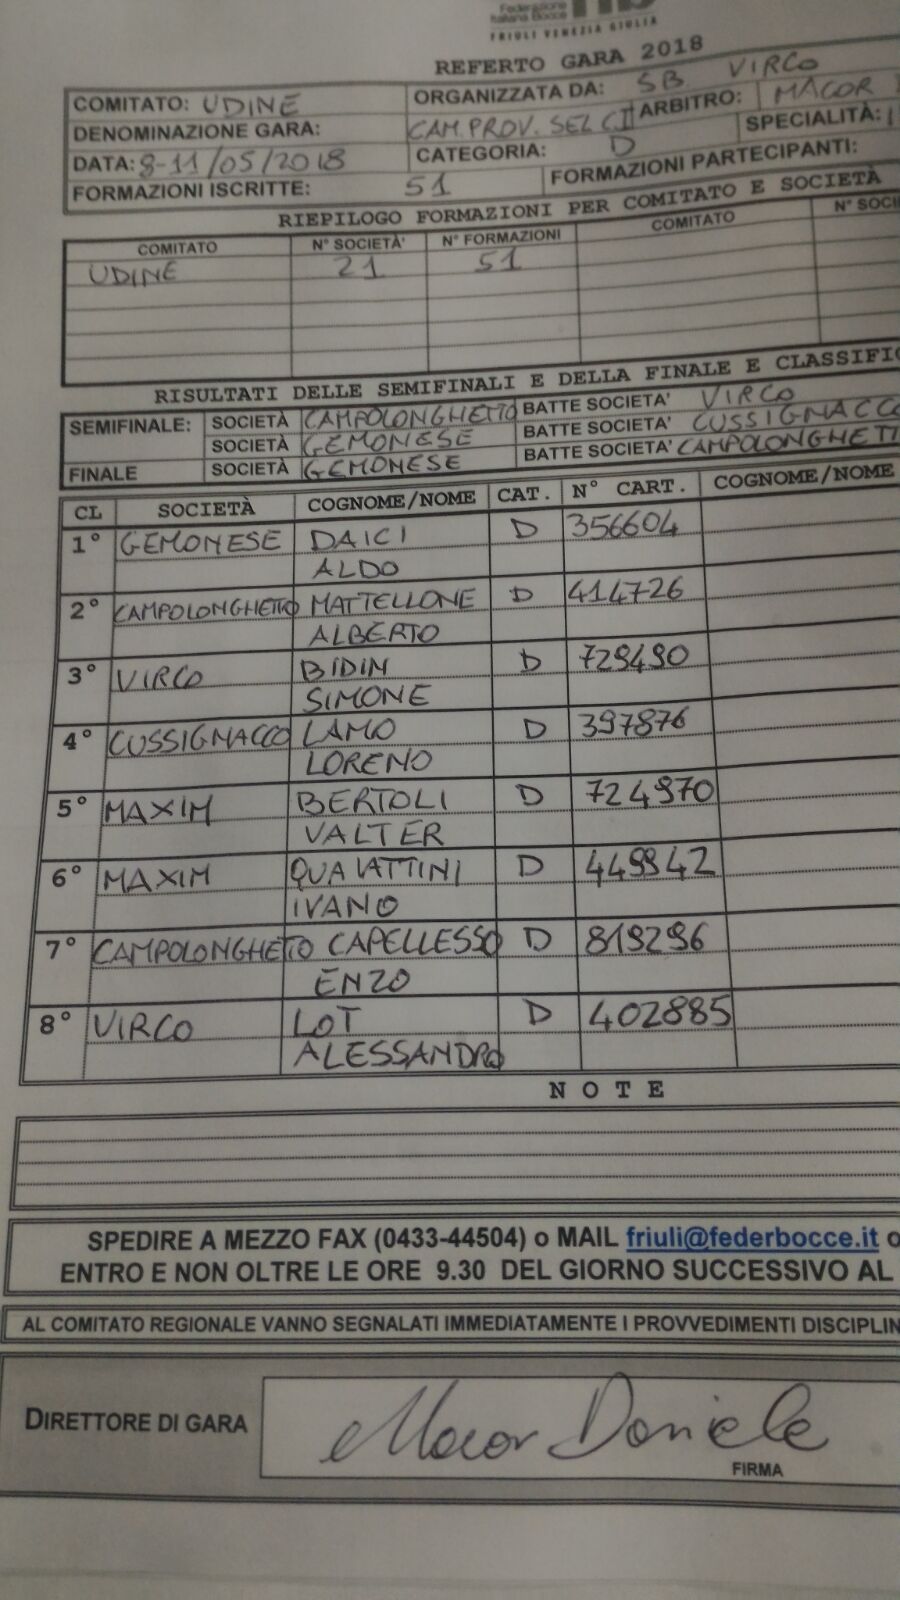 Federazione
Italiana Bocce
FRIULI VENEZIA GIULIA
REFERTO GARA 2018
COMITATO: UDINE ORGANIZZATA DA: SB VIRCO
DENOMINAZIONE GARA: CAM.PROV. SEL CII ARBITRO: MACOR
DATA: 8-11/05/2018 CATEGORIA: D SPECIALITÀ:
FORMAZIONI ISCRITTE: 51 FORMAZIONI PARTECIPANTI:
RIEPILOGO FORMAZIONI PER COMITATO E SOCIETÀ
COMITATO N° SOCIETÀ' N° FORMAZIONI COMITATO N° SOCI
UDINE 21 51
RISULTATI DELLE SEMIFINALI E DELLA FINALE E CLASSIFI
SEMIFINALE: SOCIETÀ CAMPOLONGHETTO BATTE SOCIETA' VIRCO
SOCIETÀ GEMONESE BATTE SOCIETA' CUSSIGNACCO
FINALE SOCIETÀ GEMONESE BATTE SOCIETA' CAMPOLONGHETT
CL SOCIETÀ COGNOME/NOME CAT. N° CART. COGNOME/NOME
1° GEMONESE DAICI D 356604
ALDO
2° CAMPOLONGHETTO MATTELLONE D 414726
ALBERTO
3° VIRCO BIDIN D 729490
SIMONE
4° CUSSIGNACCO LAMO D 397876
LORENO
5° MAXIM BERTOLI D 724970
VALTER
6° MAXIM D 449942
IVANO
7° CAMPOLONGHETO CAPELLESSO D 819296
ENZO
8° VIRCO LOT D 402885
ALESSANDRO
NOTE
SPEDIRE A MEZZO FAX (0433-44504) o MAIL friuli@federbocce.it o
ENTRO E NON OLTRE LE ORE 9.30 DEL GIORNO SUCCESSIVO AL
AL COMITATO REGIONALE VANNO SEGNALATI IMMEDIATAMENTE I PROVVEDIMENTI DISCIPLIN
DIRETTORE DI GARA Macor Daniele
FIRMA